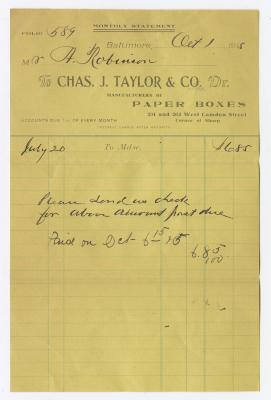 MONTHLY STATEMENT
FOLIO 589
Baltimore, Oct 1 1915
Mr A. Robinson
To CHAS. J. TAYLOR & CO. Dr.
MANUFACTURERS OF
PAPER BOXES
201 and 203 West Camden Street
Corner of Sharp
ACCOUNTS DUE 1st OF EVERY MONTH
INTEREST CHARGED AFTER MATURITY
July 20 To Mdse. $6.85
Please send us check
for above amount past due
Paid on Oct 6 15
6.85/100